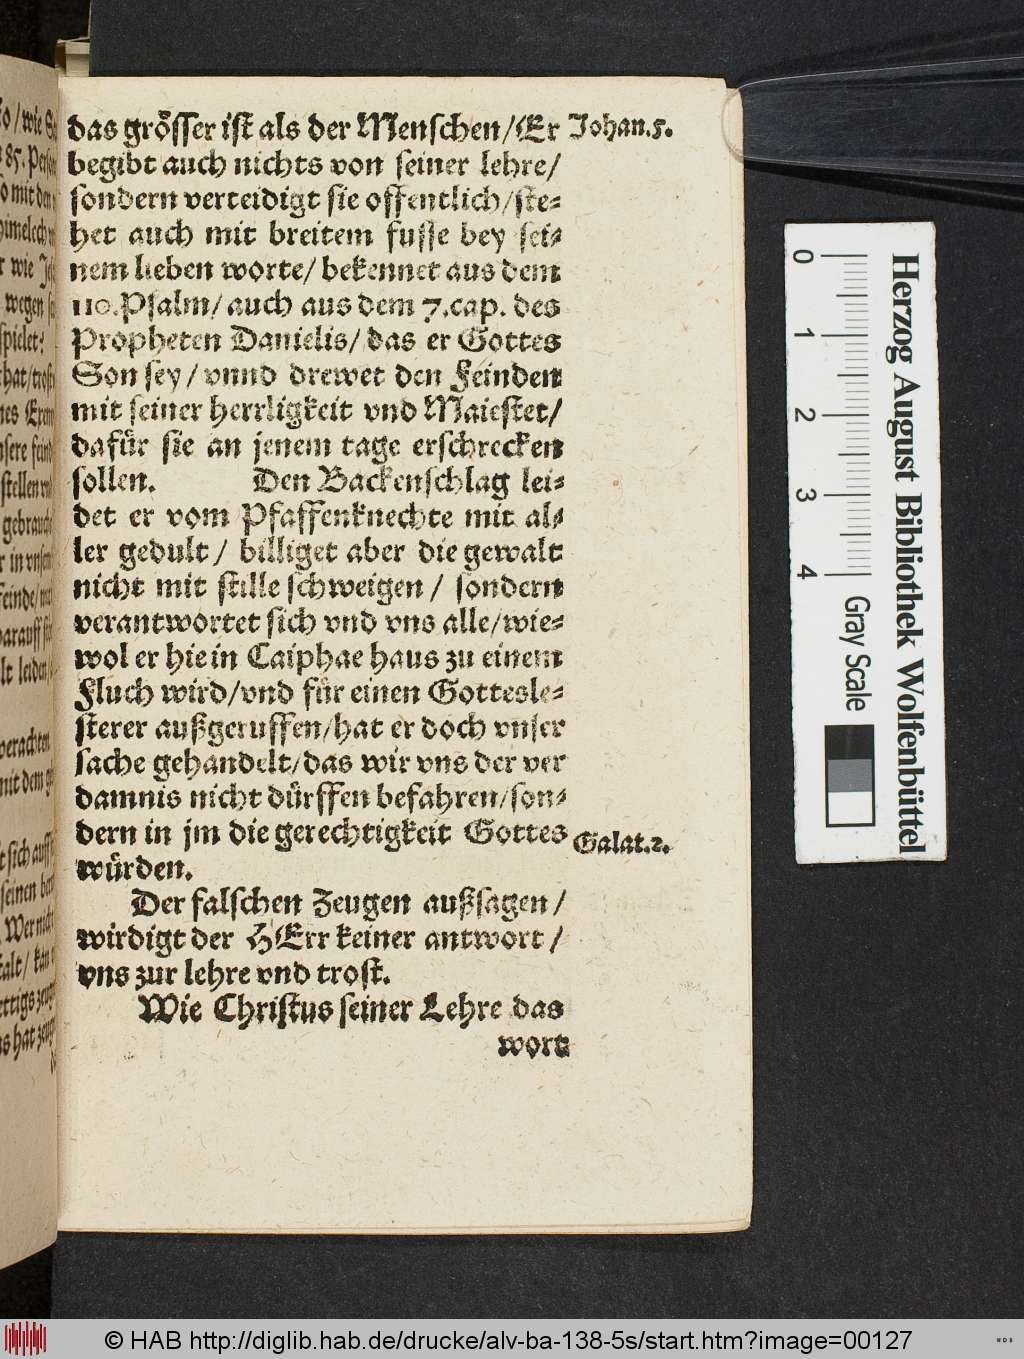 das grösser ist als der Menschen/Er Johan.5.
begibt auch nichts von seiner lehre/
sondern verteidigt sie offentlich/ste⸗
het auch mit breitem fusse bey sei⸗
nem lieben worte/ bekennet aus dem
110.Psalm/ auch aus dem 7.cap. des
Propheten Danielis/ das er Gottes
Son sey/ vnnd drewet den Feinden
mit seiner herrligkeit vnd Maiestet/
dafür sie an jenem tage erschrecken
sollen. Den Backenschlag lei⸗
det er vom Pfaffenknechte mit al⸗
ler gedult/ billiget aber die gewalt
nicht mit stille schweigen/ sondern
verantwortet sich vnd vns alle/wie⸗
wol er hie in Caiphae haus zu einem
Fluch wird/vnd für einen Gottesle⸗
sterer außgeruffen/hat er doch vnser
sache gehandelt/das wir vns der ver
damnis nicht dürffen befahren/son⸗
dern in jm die gerechtigkeit Gottes Galat.2.
würden.
Der falschen Zeugen außsagen/
wirdigt der HErr keiner antwort/
vns zur lehre vnd trost.
Wie Christus seiner Lehre das
wort
0 1 2 3 4 Gray Scale
Herzog August Bibliothek Wolfenbüttel
© HAB http://diglib.hab.de/drucke/alv-ba-138-5s/start.htm?image=00127
WDB